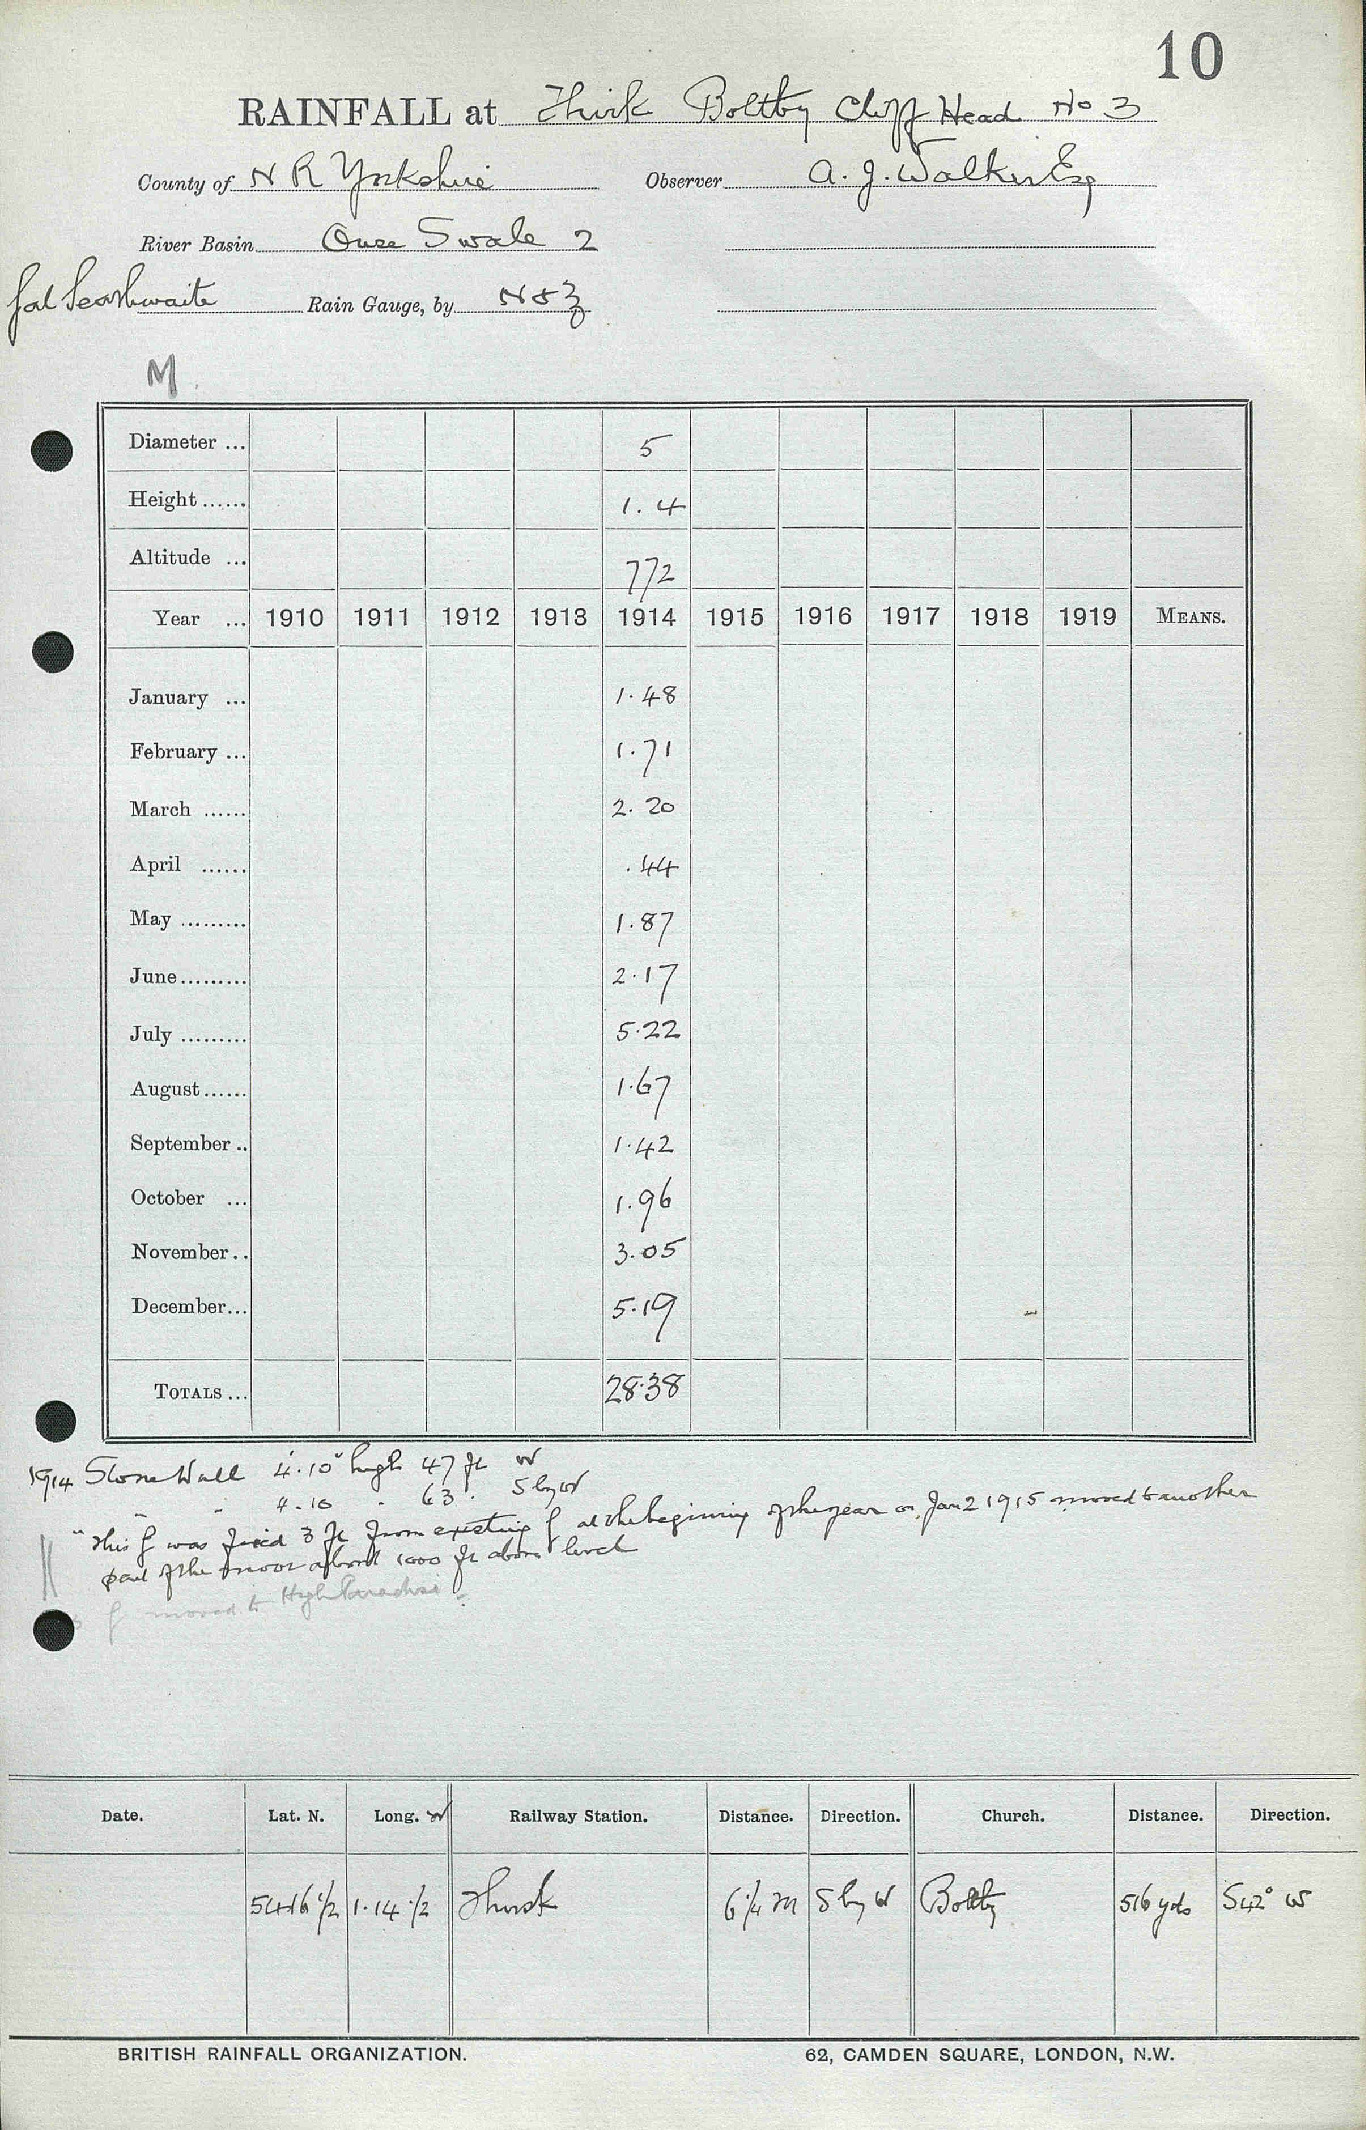 10
RAINFALL at Thirk Boltby Cliff Head No 3
County of N R Yorkshire Observer A. J. Walker Esq
River Basin Ouse Swale 2
Seathwaite Rain Gauge, by N & Z
M
Diameter ... 5
Height ...... 1.4
Altitude ... 772
Year ... 1910 1911 1912 1913 1914 1915 1916 1917 1918 1919 MEANS.
January ... 1.48
February ... 1.71
March ...... 2.20
April ...... .44
May ......... 1.87
June ......... 2.17
July ......... 5.22
August ...... 1.67
September .. 1.42
October ... 1.96
November .. 3.05
December ... 5.19
TOTALS ... 28.38
1914 Stone Wall 4.10" high 47 ft W
" " 4.10 " 63 " S by W
"This g was fixed 3 ft from existing g at the beginning of the year on Jan 2 1915 moved to another
part of the moor about 1000 ft above level
g moved to High Paradise
Date. Lat. N. Long. W Railway Station. Distance. Direction. Church. Distance. Direction.
54.16 1/2 1.14 1/2 Thirsk 6 1/4 m S by W Boltby 516 yds S 42° W
BRITISH RAINFALL ORGANIZATION. 62, CAMDEN SQUARE, LONDON, N.W.